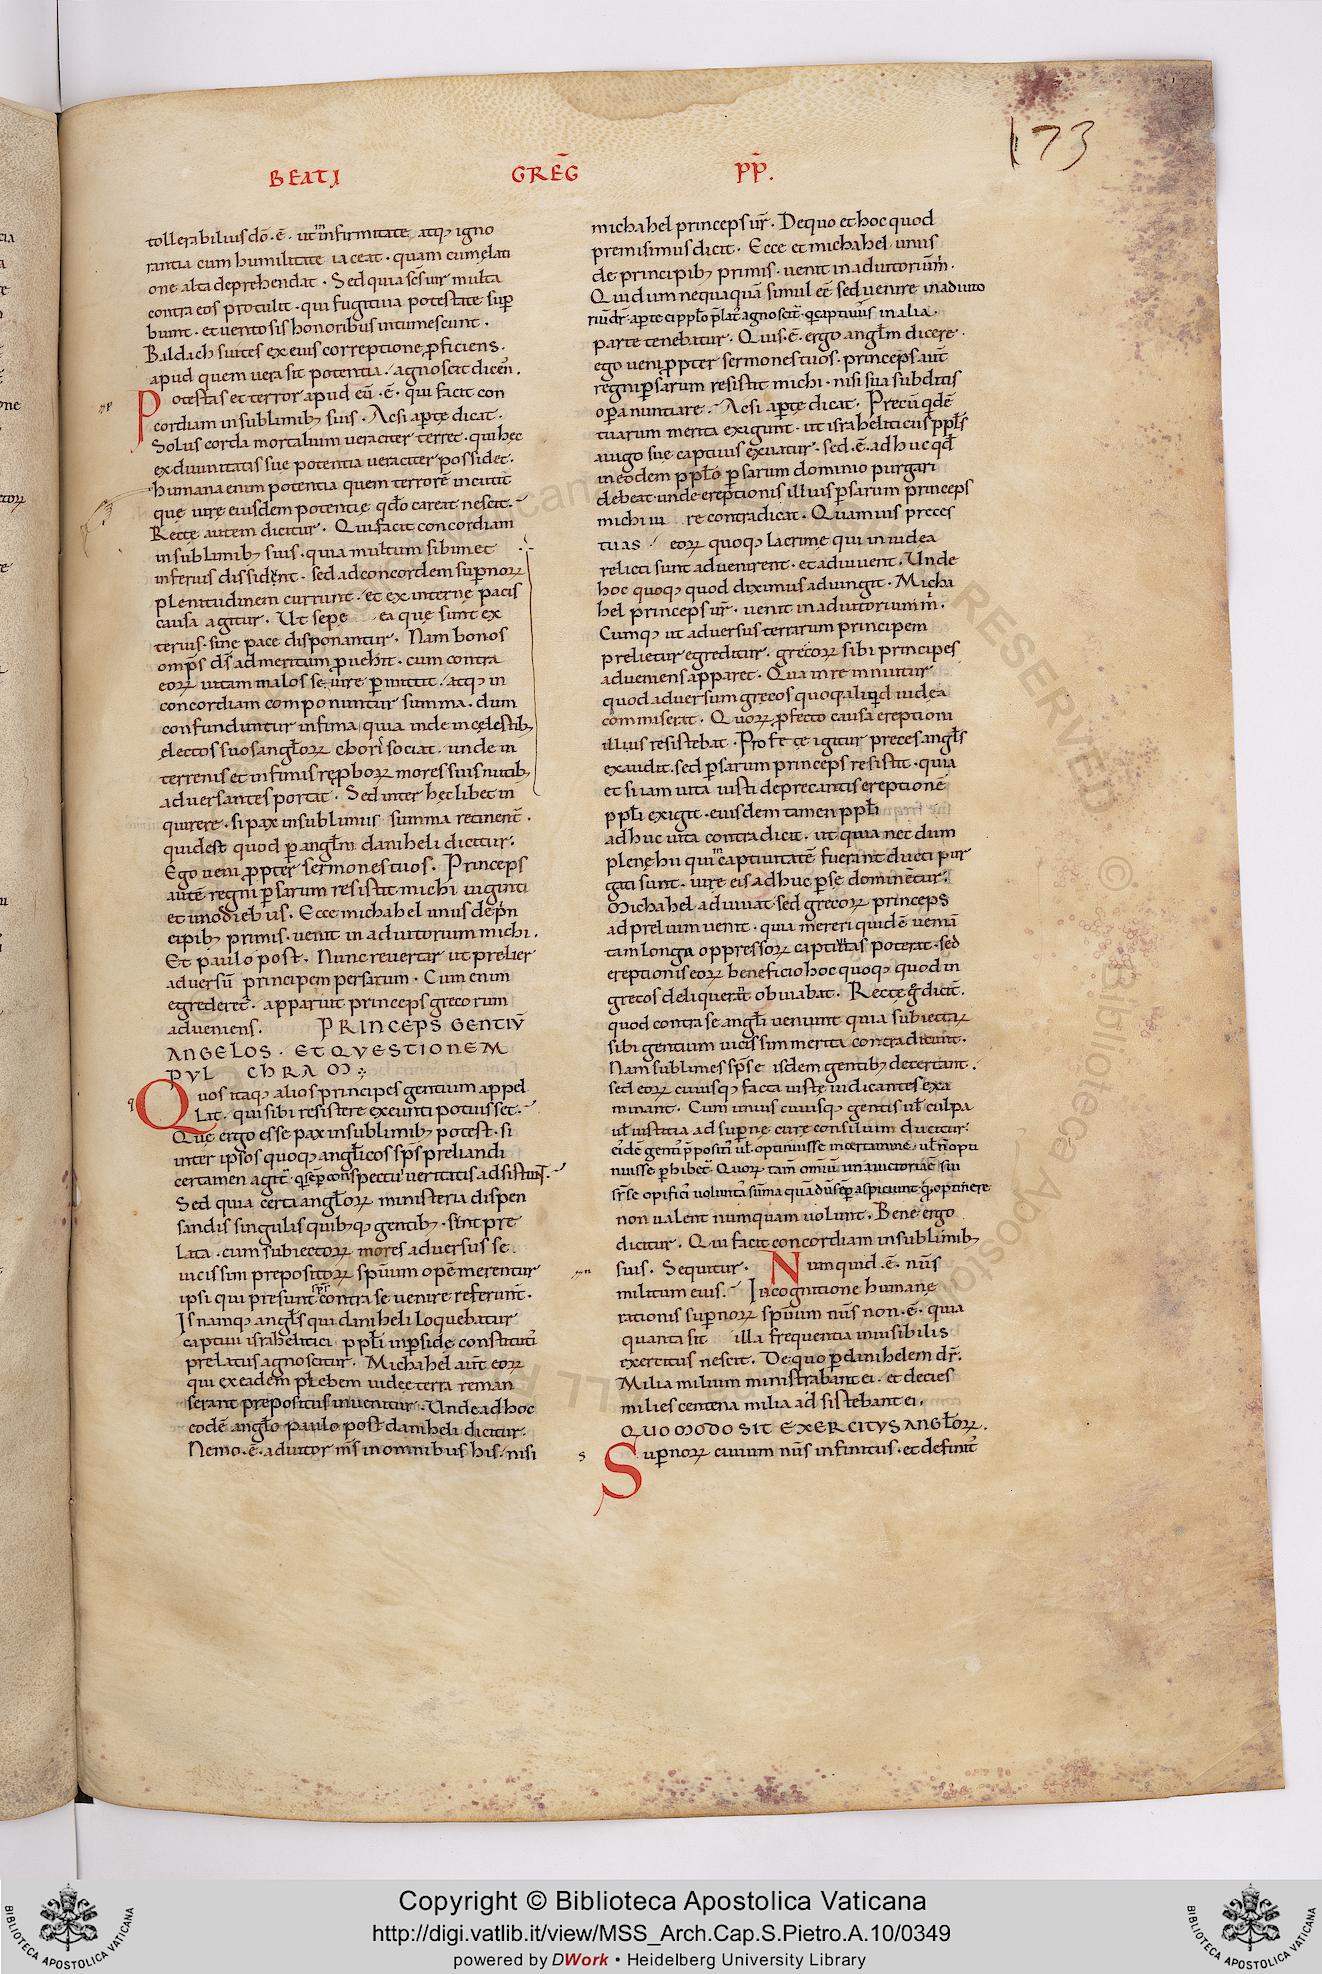 173
BEATI GREḠ P̄P̄.
tollerabilius dō. ē. ut infirmitate atq; igno
rantia cum humilitate iaceat. quam cum elati
one alta deprehendat. Sed quia se sur multa
contra eos protulit. qui fugitiva potestate sup̄
biunt. et ventosis honoribus intumescunt.
Baldach suites ex eius correptione ꝓficiens.
apud quem vera sit potentia. agnoscat dicen̄.
Potestas et terror apud eū. ē. qui facit con
cordiam in sublimib; suis. Ac si aꝑte dicat.
Solus corda mortalium veraciter terret. qui hęc
ex divinitatis sue potentia veraciter possidet.
humana enim potentia quem terrorē incutit
quę vire eiusdem potentię qđo careat nescit.
Recte autem dicitur. Qui facit concordiam
in sublimib; suis. quia multum sibimet
inferius dissident. sed ad concordem suꝑnoꝝ
plenitudinem currunt. et ex internę pacis
causa agitur. Ut sepe ea que sunt ex
terius. sine pace disponantur. Nam bonos
omp̄s ds̄ ad meritum ꝓvehit. cum contra
eoꝝ vitam malos sevire ꝑmittit. atq; in
concordiam componuntur summa. dum
confunduntur infima. quia inde in cęlestib;
electos suos angl̄oꝝ chori sociat. unde in
terrenis et infimis reꝓboꝝ mores suis nutib;
adversantes portat. Sed inter hec libet in
quirere. si pax in sublimius summa retinent̄.
quid est quod ꝑ angl̄m daniheli dicitur:
Ego veni ꝓpter sermones tuos. Princeps
autē regni ꝑsarum resistit michi viginti
et uno dieb us. Ecce michahel unus de prin
cipib; primis. venit in adiutorium michi.
Et paulo post. Nunc revertar ut prelier
adversū principem persarum. Cum enim
egrederet̄. apparuit princeps grecorum
adveniens. PRINCEPS GENTIV̄
ANGELOS. ET QVESTIONEM
PVL CHRAM
Quos itaq; alios principes gentium appel
lat. qui sibi resistere exeunti potuisset.
Que ergo esse pax in sublimib; potest. si
inter ipsos quoq; angl̄icos sp̄s preliandi
certamen agit̄. qi semꝑ conspectui veritatis adsistunt.
Sed quia certa angl̄oꝝ ministeria dispen
sandis singulis quibq; gentib; sint pre
lata. cum subiectoꝝ mores adversus se
vicissim prepositoꝝ sp̄uum opē merentur
ipsi qui presunt sp̄s contra se venire referunt̄.
Is namq; angl̄s qui daniheli loquebatur
captivi israhelitici ppl̄i in ꝑside constituti
prelatus agnoscitur. Michahel aut̄ eoꝝ
qui ex eadem plebem iudee terra reman
serant prepositus invenitur. Unde ad hoc
eodē angl̄o paulo post daniheli dicitur.
Nemo. ē. adiutor m̄s in omnibus his. nisi
michahel princeps ur̄. De quo et hoc quod
premisimus dicit. Ecce et michahel unus
de principib; primis. venit in adiutoriūm̄.
Qui dum nequaquā simul eē sed venire in adiuto
riū dr̄. aꝑte ei ppl̄o p̄lat̄ agnoscit̄. q̄ captivus in alia
parte tenebatur. Quis. ē. ergo angl̄m dicere.
ego veni ꝓpter sermones tuos. princeps aut̄
regni ꝑsarum resistit michi. nisi sua subditis
oꝑa nuntiare. Ac si aꝑte dicat. Precū q̄dē
tuarum merita exigunt. ut israheliticus ppl̄s
a iugo sue captivis exuatur. sed. ē. adhuc qđ
in eodem ppl̄o ꝑsarum dominio purgari
debeat. unde ereptionis illius ꝑsarum princeps
michi iu re contradicat. Quamvis preces
tuas eoꝝ quoq; lacrime qui in iudea
relicti sunt advenirent. et adiuvent. Unde
hoc quoq; quod diximus adiungit. Micha
hel princeps ur̄. venit in adiutorium m̄.
Cumq; ut adversus terrarum principem
prelietur egreditur. grecoꝝ sibi principes
adveniens apparet. Qua in re innuitur
quod adversum grecos quoq; aliquid iudea
commiserat. Quoꝝ ꝓfecto causa ereptioni
illius resistebat. Profe te igitur preces angl̄s
exaudit. sed ꝑsarum princeps resistit. quia
et si iam vita iusti deprecantis ereptionē
ppl̄i exigit. eiusdem tamen ppl̄i
adhuc vita contradicit. ut quia nec dum
plene hii qui in captivitatē fuerant ducti pur
gati sunt. iure eis adhuc ꝑse dominētur.
Michahel adiuvat. sed grecoꝝ princeps
ad prelium venit. quia mereri quidē veniā
tam longa oppressoꝝ captivitas poterat. sed
ereptionis eoꝝ beneficio hoc quoq; quod in
grecos deliquerāt obviabat. Recte g̊ dicit̄.
quod contra se angl̄i veniunt quia subiectaꝝ
sibi gentium vicissim merita contradicunt.
Nam sublimes sp̄s e isdem gentib; decertant.
sed eoꝝ cuiusq; facta iuste iudicantes exa
minant. Cum unius cuiusq; gentis ul̄ culpa
ul̄ iustitia ad suꝑne cure consilium ducitur:
eidē genti p̄positi ul̄ optinuisse in certamine. ul̄ n̄ opti
nuisse ꝑhibet̄. Quoꝝ tam̄ omiū una victoria ē. sui
sr̄ se opifici voluntā sūma quā dū semꝑ aspiciunt. q̨ optinere
non valent numquam volunt. Bene ergo
dicitur. Qui facit concordiam in sublimib;
suis. Sequitur. Numquid. ē. nūs
militum eius. In cognitione humanę
rationis suꝑnoꝝ sp̄uum nūs non. ē. quia
quanta sit illa frequentia invisibilis
exercitus nescit. De quo ꝑ danihelem dr̄.
Milia milium ministrabant ei. et decies
milies centena milia ad sistebant ei.
QUOMODO SIT EXERCITVS ANGL̄OꝜ.
Suꝑnoꝝ civium nūs infinitus. et definit̄
Copyright © Biblioteca Apostolica Vaticana
http://digi.vatlib.it/view/MSS_Arch.Cap.S.Pietro.A.10/0349
powered by DWork • Heidelberg University Library
BIBLIOTECA APOSTOLICA VATICANA
BIBLIOTECA APOSTOLICA VATICANA